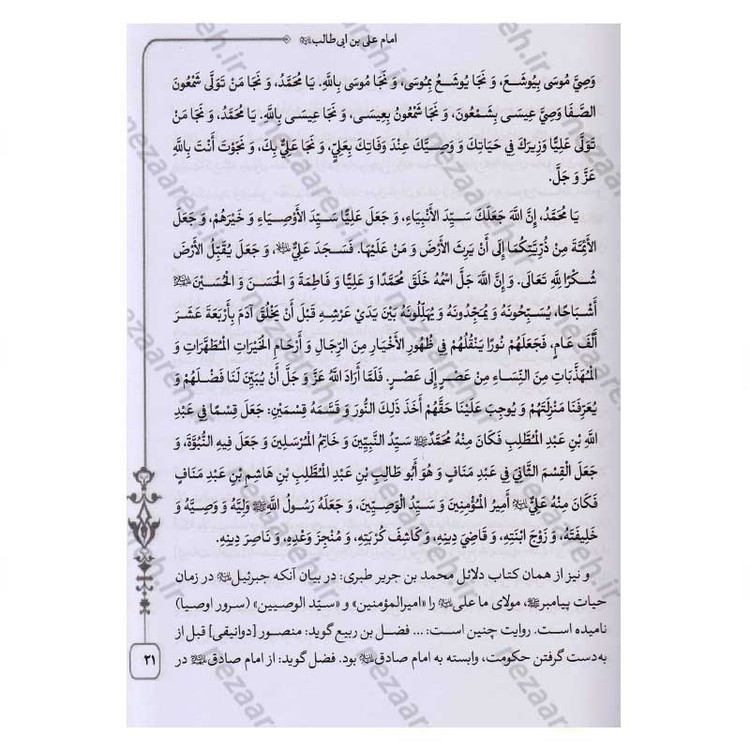 امام علی بن ابی طالب
وَصِيُّ مُوسَى بِيُوشَعَ، وَ نَجَا يُوشَعُ بِمُوسَى، وَ نَجَا مُوسَى بِاللهِ. يَا مُحَمَّدُ، وَ نَجَا مَنْ تَوَلَّى شَمْعُونَ
الصَّفَا وَصِيَّ عِيسَى بِشَمْعُونَ، وَ نَجَا شَمْعُونُ بِعِيسَى، وَ نَجَا عِيسَى بِاللهِ. يَا مُحَمَّدُ، وَ نَجَا مَنْ
تَوَلَّى عَلِيًّا وَزِيرَكَ فِي حَيَاتِكَ وَ وَصِيَّكَ عِنْدَ وَفَاتِكَ بِعَلِيٍّ، وَ نَجَا عَلِيٌّ بِكَ، وَ نَجَوْتَ أَنْتَ بِاللهِ
عَزَّ وَ جَلَّ.
يَا مُحَمَّدُ، إِنَّ اللهَ جَعَلَكَ سَيِّدَ الأَنْبِيَاءِ، وَ جَعَلَ عَلِيًّا سَيِّدَ الأَوْصِيَاءِ وَ خَيْرَهُمْ، وَ جَعَلَ
الأَئِمَّةَ مِنْ ذُرِّيَّتِكُمَا إِلَى أَنْ يَرِثَ الأَرْضَ وَ مَنْ عَلَيْهَا. فَسَجَدَ عَلِيٌّ، وَ جَعَلَ يُقَبِّلُ الأَرْضَ
شُكْرًا لِلهِ تَعَالَى. وَ إِنَّ اللهَ جَلَّ اسْمُهُ خَلَقَ مُحَمَّدًا وَ عَلِيًّا وَ فَاطِمَةَ وَ الْحَسَنَ وَ الْحُسَيْنَ
أَشْبَاحًا، يُسَبِّحُونَهُ وَ يُمَجِّدُونَهُ وَ يُهَلِّلُونَهُ بَيْنَ يَدَيْ عَرْشِهِ قَبْلَ أَنْ يَخْلُقَ آدَمَ بِأَرْبَعَةَ عَشَرَ
أَلْفَ عَامٍ، فَجَعَلَهُمْ نُورًا يَنْقُلُهُمْ فِي ظُهُورِ الأَخْيَارِ مِنَ الرِّجَالِ وَ أَرْحَامِ الْخَيْرَاتِ الْمُطَهَّرَاتِ وَ
الْمُهَذَّبَاتِ مِنَ النِّسَاءِ مِنْ عَصْرٍ إِلَى عَصْرٍ. فَلَمَّا أَرَادَ اللهُ عَزَّ وَ جَلَّ أَنْ يُبَيِّنَ لَنَا فَضْلَهُمْ وَ
يُعَرِّفَنَا مَنْزِلَتَهُمْ وَ يُوجِبَ عَلَيْنَا حَقَّهُمْ أَخَذَ ذَلِكَ النُّورَ وَ قَسَّمَهُ قِسْمَيْنِ: جَعَلَ قِسْمًا فِي عَبْدِ
اللهِ بْنِ عَبْدِ الْمُطَّلِبِ فَكَانَ مِنْهُ مُحَمَّدٌ سَيِّدُ النَّبِيِّينَ وَ خَاتِمُ الْمُرْسَلِينَ وَ جَعَلَ فِيهِ النُّبُوَّةَ، وَ
جَعَلَ الْقِسْمَ الثَّانِيَ فِي عَبْدِ مَنَافٍ وَ هُوَ أَبُو طَالِبِ بْنِ عَبْدِ الْمُطَّلِبِ بْنِ هَاشِمِ بْنِ عَبْدِ مَنَافٍ
فَكَانَ مِنْهُ عَلِيٌّ أَمِيرُ الْمُؤْمِنِينَ وَ سَيِّدُ الْوَصِيِّينَ، وَ جَعَلَهُ رَسُولُ اللهِ وَلِيَّهُ وَ وَصِيَّهُ وَ
خَلِيفَتَهُ، وَ زَوْجَ ابْنَتِهِ، وَ قَاضِيَ دِينِهِ، وَ كَاشِفَ كُرْبَتِهِ، وَ مُنْجِزَ وَعْدِهِ، وَ نَاصِرَ دِينِهِ.
و نیز از همان کتاب دلائل محمد بن جریر طبری: در بیان آنکه جبرئیل در زمان
حیات پیامبر، مولای ما علی را «امیرالمؤمنین» و «سیّد الوصیین» (سرور اوصیا)
نامیده است. روایت چنین است: ... فضل بن ربیع گوید: منصور [دوانیقی] قبل از
به‌دست گرفتن حکومت، وابسته به امام صادق بود. فضل گوید: از امام صادق در
۲۱
nezaareh.ir